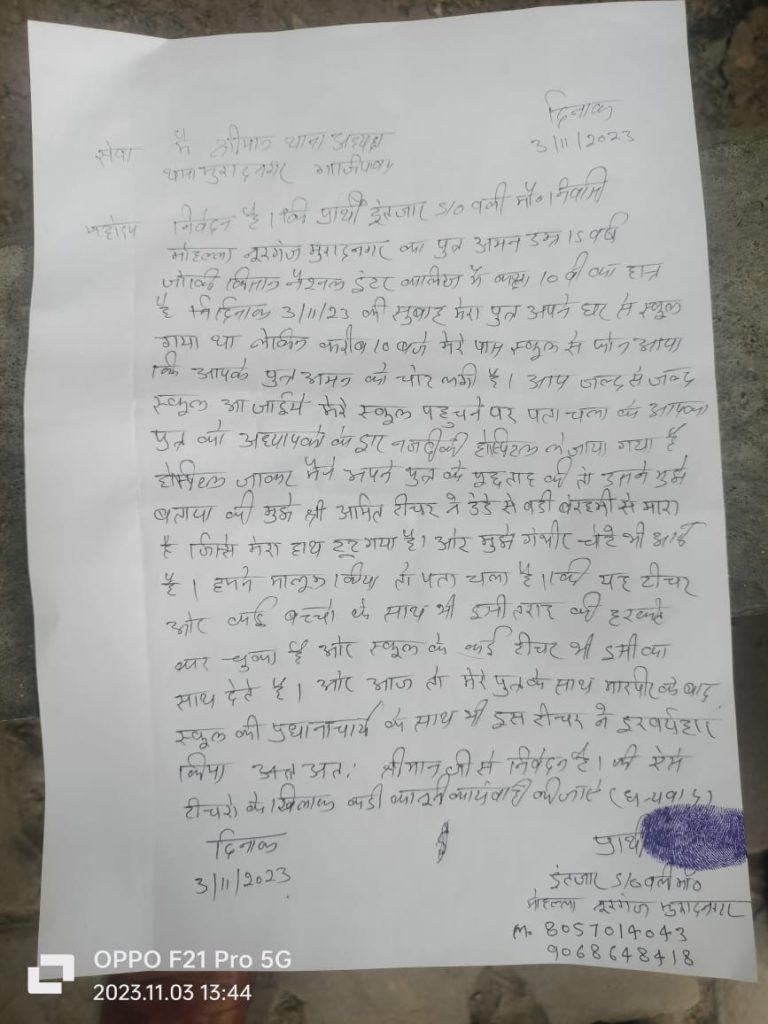 दिनांक
3/11/2023
सेवा में श्रीमान थाना अध्यक्ष
थाना मुरादनगर गाजियाबाद
महोदय निवेदन है। कि प्रार्थी इंतजार S/o वली मौ० निवासी
मोहल्ला नूरगंज मुरादनगर का पुत्र अमन उम्र 15 वर्ष
जोकि किसान नैशनल इंटर कालिज में कक्षा 10 वी का छात्र
है कि दिनांक 3/11/23 की सुबाह मेरा पुत्र अपने घर से स्कूल
गया था लेकिन करीब 10 बजे मेरे पास स्कूल से फोन आया
कि आपके पुत्र अमन को चोट लगी है। आप जल्द से जल्द
स्कूल आ जाईये मेरे स्कूल पहुचने पर पता चला के आपका
पुत्र को अध्यापको के द्वारा नजदीकी होस्पिटल ले जाया गया है
होस्पिटल जाकर मैने अपने पुत्र के पूछताछ की तो उसने मुझे
बताया की मुझे श्री अमित टीचर ने डंडे से बडी बेरहमी से मारा
है जिससे मेरा हाथ टूट गया है। ओर मुझे गंभीर चोटे भी आई
है। हमने मालूम किया तो पता चला है। की यह टीचर
ओर कई बच्चो के साथ भी इसी तराह की हरकते
कर चुका है ओर स्कूल के कई टीचर भी इसी का
साथ देते है। ओर आज तो मेरे पुत्र के साथ मारपीट के बाद
स्कूल की प्रधानाचार्य के साथ भी इस टीचर ने
किया अत अतः श्रीमान जी से निवेदन है। की ऐसे
टीचरो के खिलाफ कडी कानूनी कार्यवाही की जाये (धन्यवाद)
दिनांक
3/11/2023
प्रार्थी
इंतजार S/o वली मौ०
मोहल्ला नूरगंज मुरादनगर
M. 8057014043
9068648418
OPPO F21 Pro 5G
2023.11.03 13:44